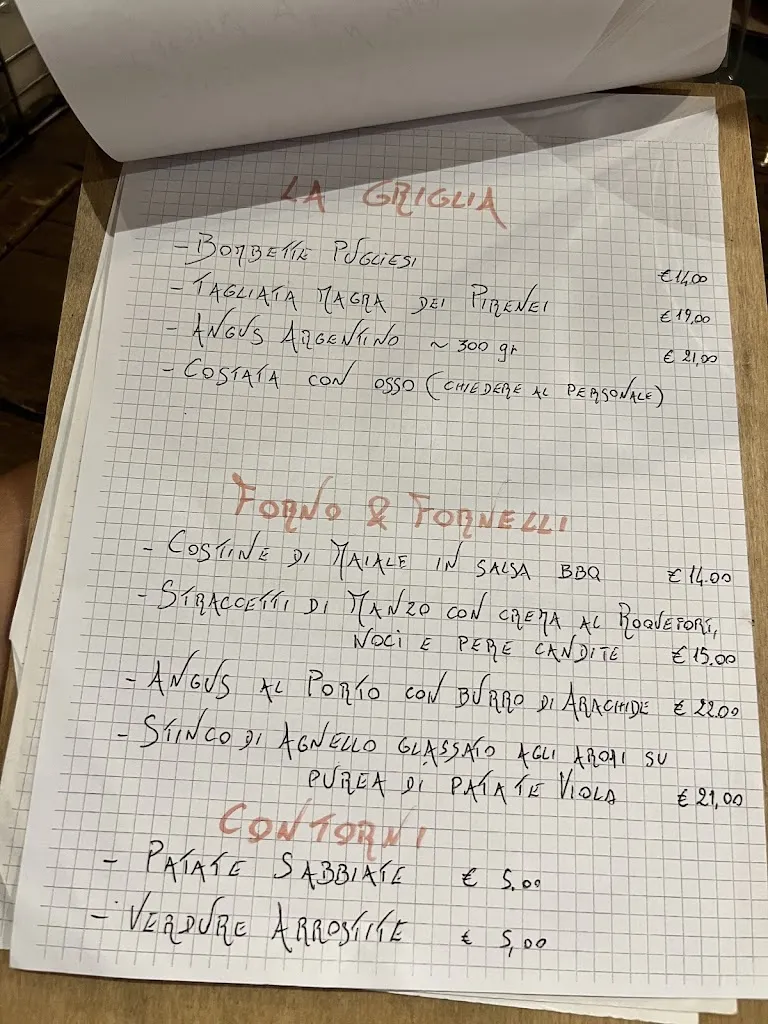 LA GRIGLIA
- BOMBETTE PUGLIESI €14,00
- TAGLIATA MAGRA DEI PIRENEI €19,00
- ANGUS ARGENTINO ~ 300 gr €21,00
- COSTATA CON OSSO (CHIEDERE AL PERSONALE)
FORNO & FORNELLI
- COSTINE DI MAIALE IN SALSA BBQ €14.00
- STRACCETTI DI MANZO CON CREMA AL ROQUEFORT,
NOCI E PERE CANDITE €15.00
- ANGUS AL PORTO CON BURRO DI ARACHIDE €22.00
- STINCO DI AGNELLO GLASSATO AGLI AROMI SU
PUREA DI PATATE VIOLA €21,00
CONTORNI
- PATATE SABBIATE € 5.00
- VERDURE ARROSTITE € 5,00